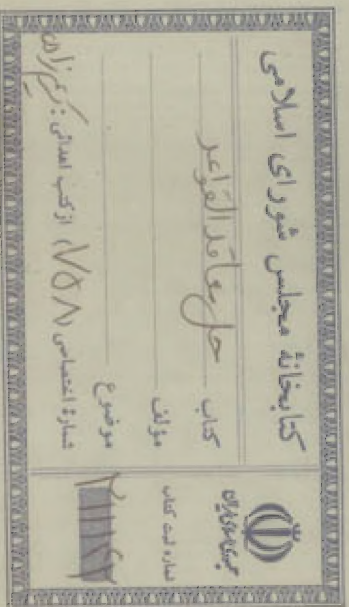 کتابخانهٔ مجلس شورای اسلامی
کتاب حل معاقد القواعد
مؤلف
موضوع
شمارهٔ اختصاصی (۷۵۸) از کتب اهدائی:
جمهوری اسلامی ایران
شماره ثبت کتاب